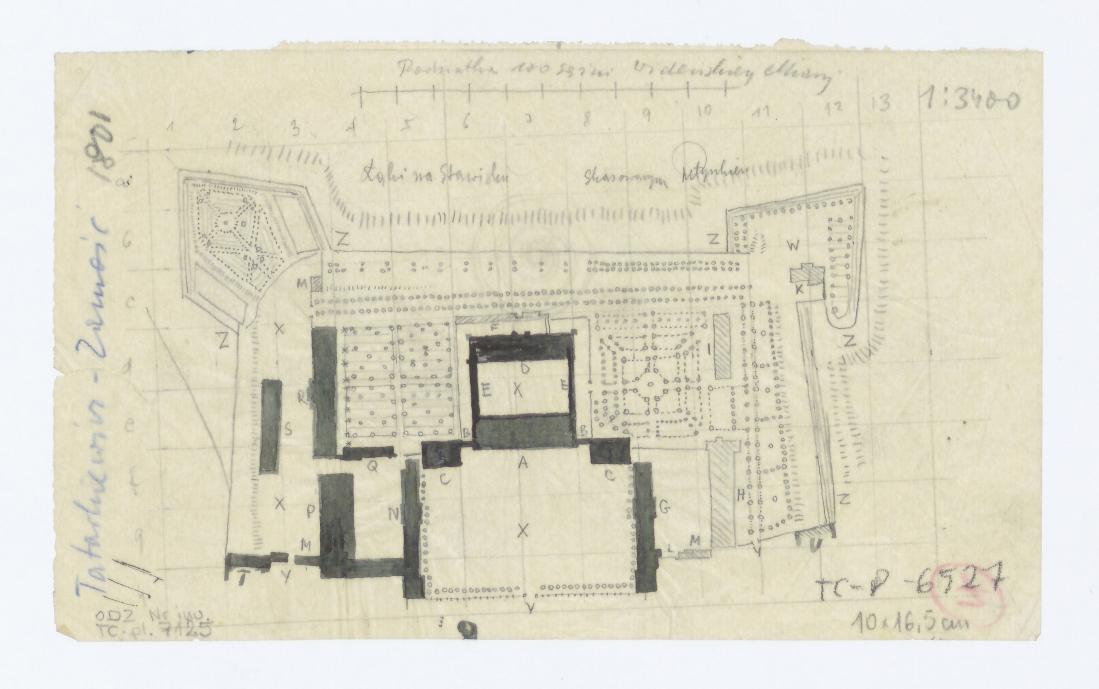 Podziałka 100 sążni Wideńskiey Miary
1:3400
1 2 3 4 5 6 7 8 9 10 11 12 13
Łąki na Stawisku
Skasowanym
Tatarkiewicz - Zamość 1801
a
b
c
d
e
f
g
Z
Z
W
K
M
X
Z
Z
F
D
I
R
E
X
E
S
B
B
Q
A
C
C
X
P
N
X
G
H
Z
M
L
M
T
Y
Y
U
Y
TC-P-6527
10x16,5cm
ODZ Nr inw.
TC-pl. 7125